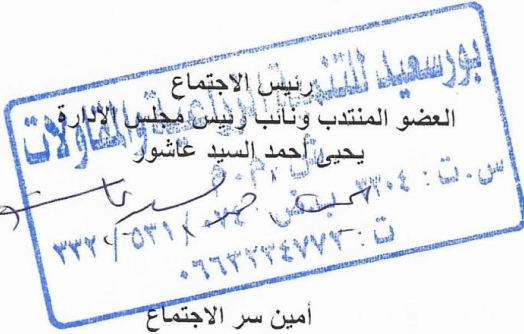 رئيس الاجتماع
العضو المنتدب ونائب رئيس مجلس الإدارة
يحيى أحمد السيد عاشور
بورسعيد للتنمية الزراعية والمقاولات
ش.م.م
س.ت : ٣٣٠٤ ب.ض
ت : ٠٦٦٣٢٣٤٧٧٢
أمين سر الاجتماع